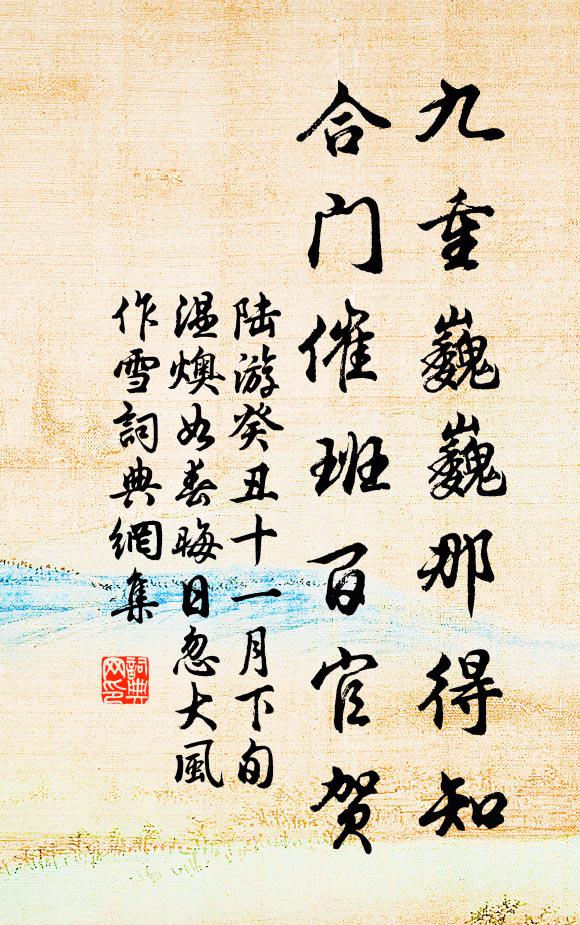 九重巍巍那得知
合门催班百官贺
陆游癸丑十一月下旬
温燠如春晦日忽大風
作雪詞典網集
詞典
网印